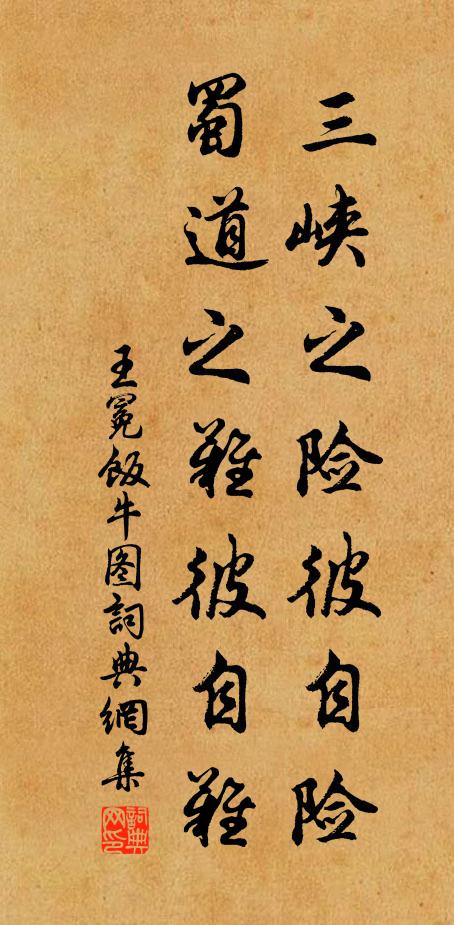 三峡之险彼自险
蜀道之难彼自难
王冕饭牛图詞典網集
詞典网印